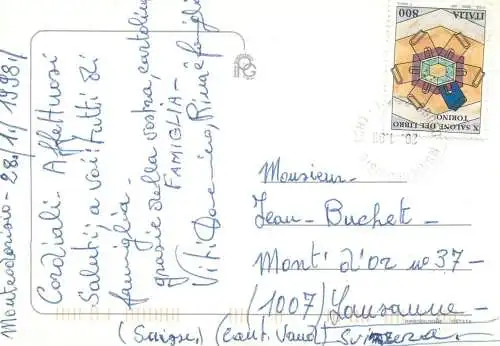 Montescaglioso - 28/1/1998/
Cordiali - Affettuosi
Saluti; a voi tutti di
famiglia -
grazie della vostra, cartolina
FAMIGLIA -
Viti Domenico, Rina e famiglia
ITALIA 800
X SALONE DEL LIBRO
TORINO
Monsieur -
Jean - Buchet -
Mont' d'or n° 37 -
(1007) Lausanne -
(Suisse) (Cant. Vaud) Svizzera -